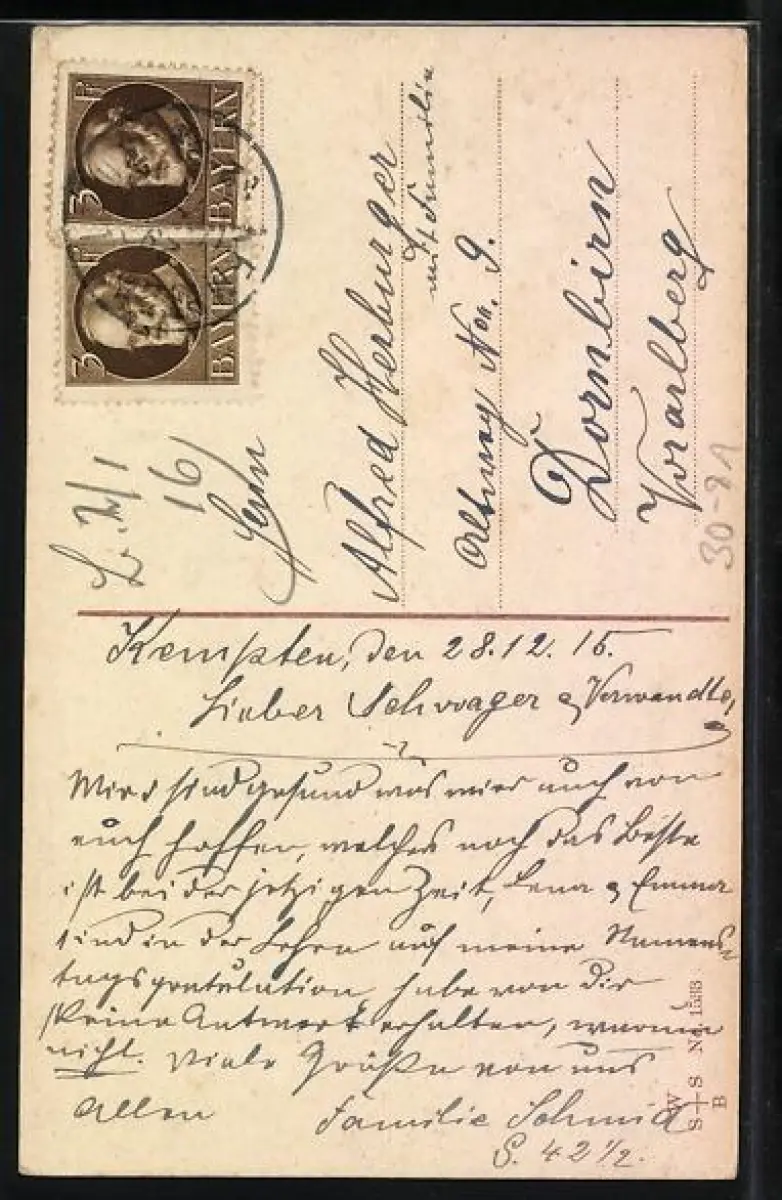 3 Pf BAYERN
3 Pf BAYERN
Alfred Herburger
mit Familie
No. 9.
Dornbirn
Vorarlberg
30-8A
16
Kempten, den 28.12.15.
Lieber Schwager & Verwandte,
Wir sind gesund was wir auch von
euch hoffen, welches noch das Beste
ist bei der jetzigen Zeit, Lena & Emma
sind in der Lehre auf meine Namens-
tagsgratulation habe von Dir
keine Antwort erhalten, warum
nicht. Viele Grüße von uns
allen Familie Schmid
S. 42 1/2.
W
S+S No 1533
B